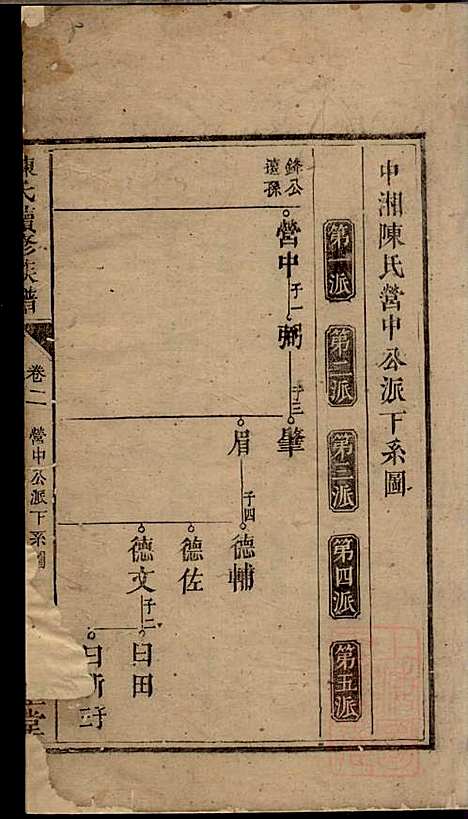 中湘陳氏營中公派下系圖
第一派
第二派
第三派
第四派
第五派
鋒公
遠孫
營中
子一
弼
子三
肇
眉
子四
德輔
德佐
德文
子二
日田
日新
子三
陳氏續修族譜
卷二
營中公派下系圖
堂